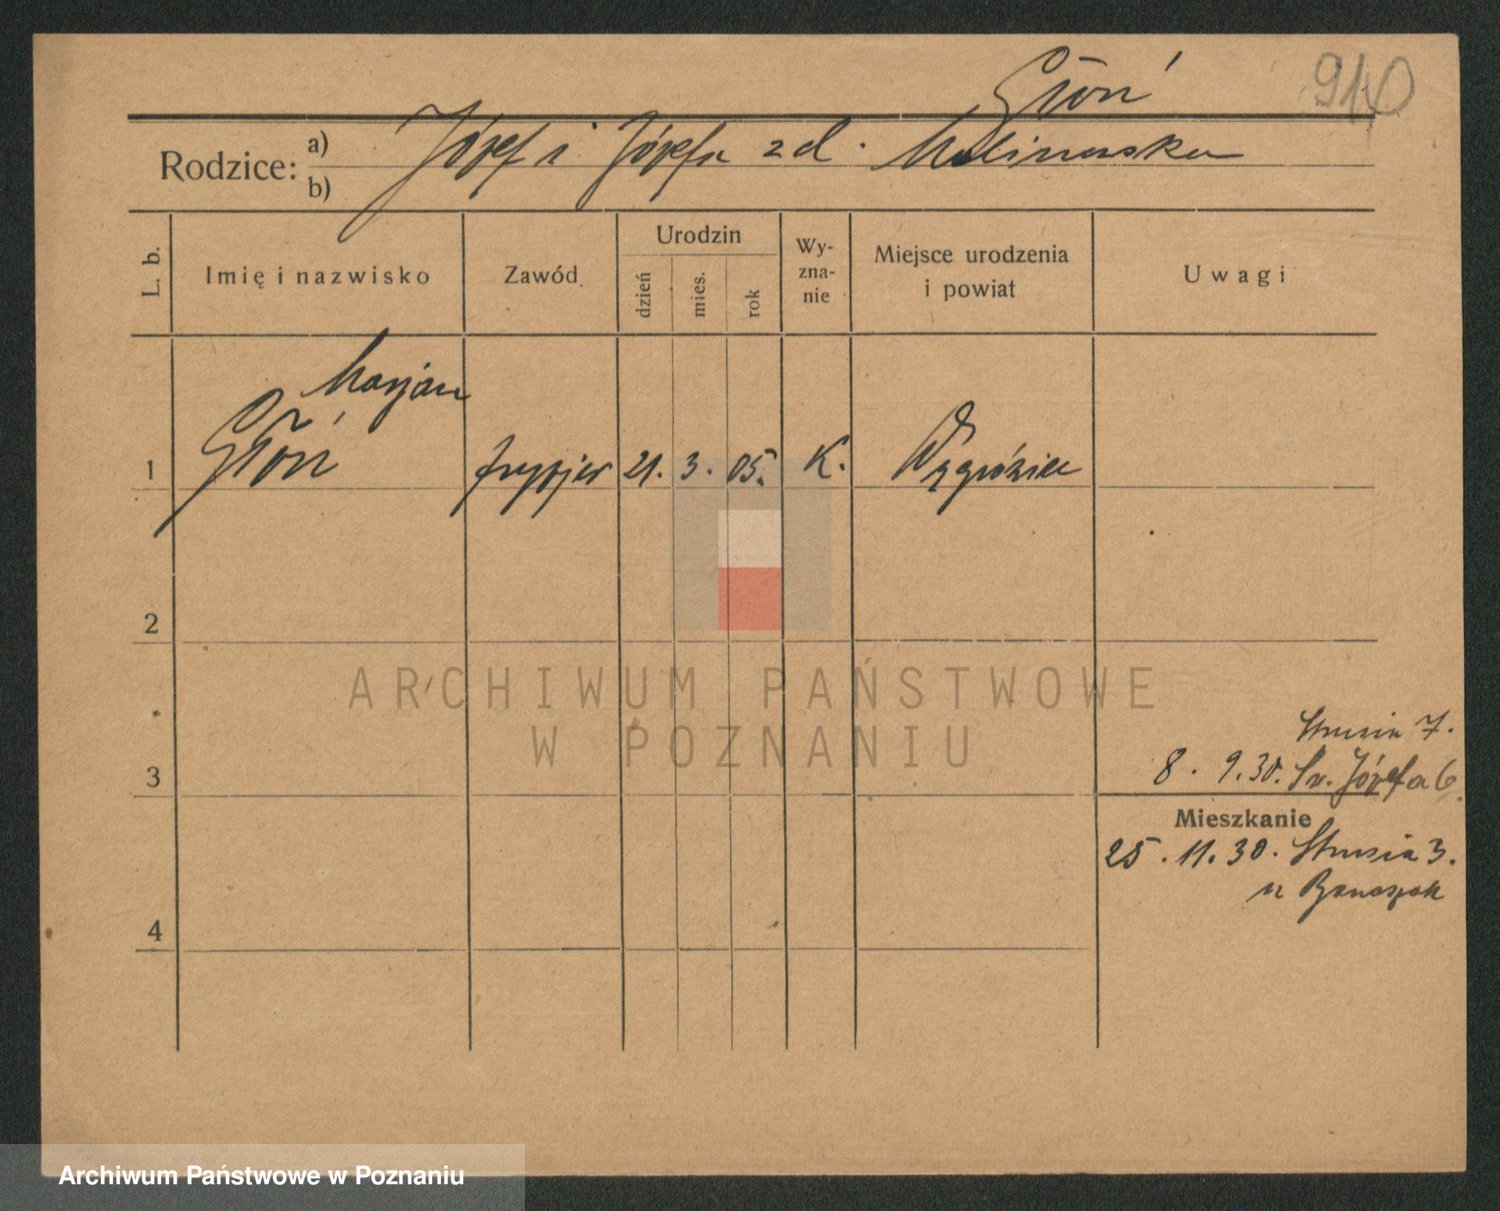 Głoń
910
Rodzice: a) Józef i Józefa z d. Malinowska
b)
L. b.
Imię i nazwisko
Zawód
Urodzin
dzień
mies.
rok
Wy-
zna-
nie
Miejsce urodzenia
i powiat
Uwagi
Marjan
1 Głoń fryzjer 21. 3. 05. K.
2
ARCHIWUM PAŃSTWOWE
W POZNANIU
Strusia 7.
3 8. 9.30. Św. Józefa 6.
Mieszkanie
25. 11. 30. Strusia 3.
u Banaszak
4
Archiwum Państwowe w Poznaniu